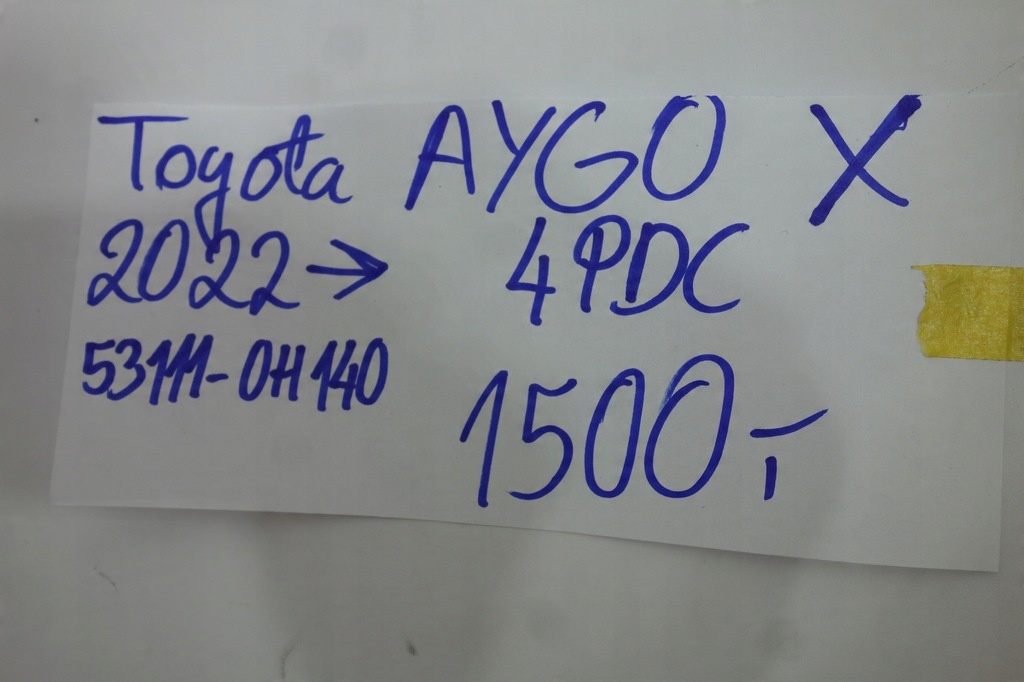 Toyota AYGO X
2022→ 4PDC
53111-0H140
1500,-